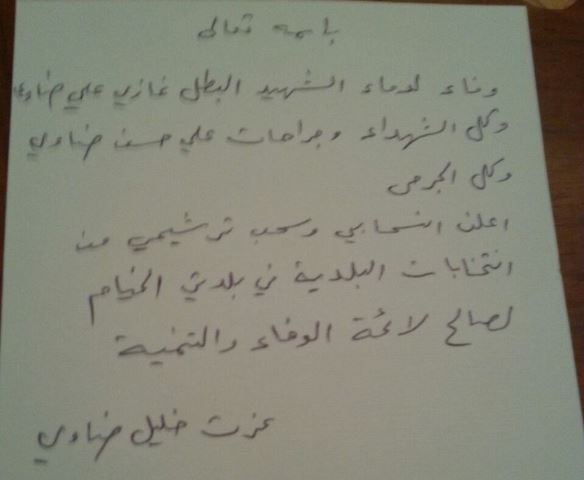 باسمه تعالى
وفاء لدماء الشهيد البطل غازي علي ضاوي
وكل الشهداء وجراحات علي حسن ضاوي
وكل الجرحى
اعلن انسحابي وسحب ترشيحي من
انتخابات البلدية في بلدتي الخيام
لصالح لائحة الوفاء والتنمية
عزت خليل ضاوي